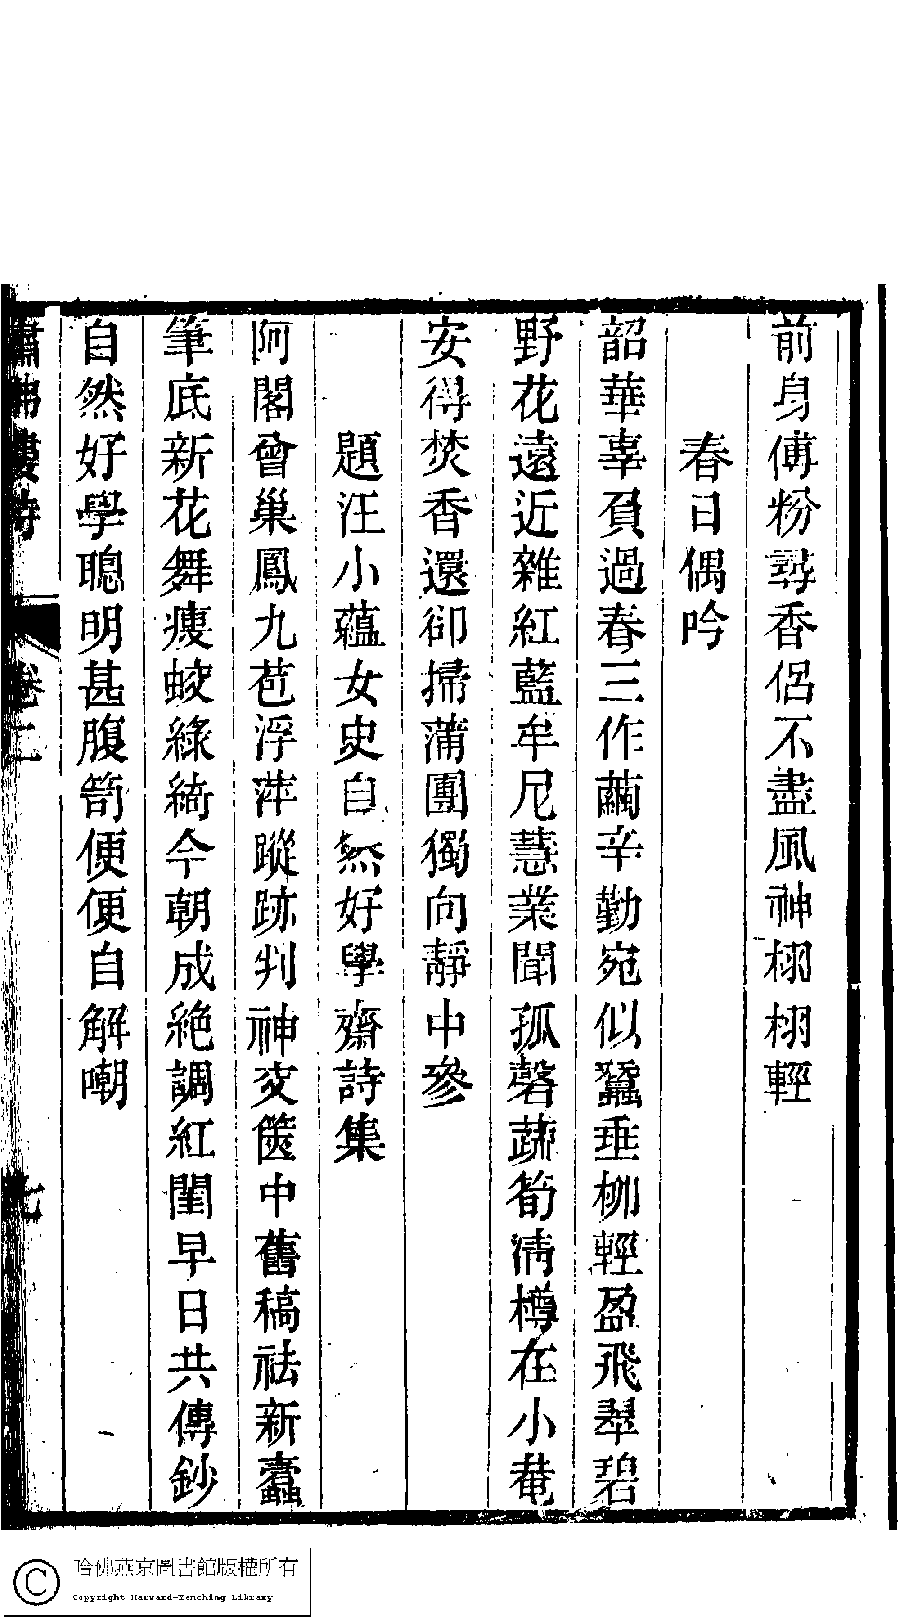 前身傅粉尋香侶不盡風神栩栩輕
春日偶吟
韶華辜負過春三作繭辛勤宛似蠶垂柳輕盈飛翠碧
野花遠近雜紅藍牟尼慧業聞孤磬蔬筍清樽在小菴
安得焚香還卻掃蒲團獨向靜中參
題汪小蘊女史自然好學齋詩集
阿閣曾巢鳳九苞浮萍蹤跡判神交篋中舊稿祛新蠹
筆底新花舞瘦蛟綠綺今朝成絕調紅閨早日共傳鈔
自然好學聰明甚腹笥便便自解嘲
繡佛樓詩 卷二 七
哈佛燕京圖書館版權所有
Copyright Harvard-Yenching Library